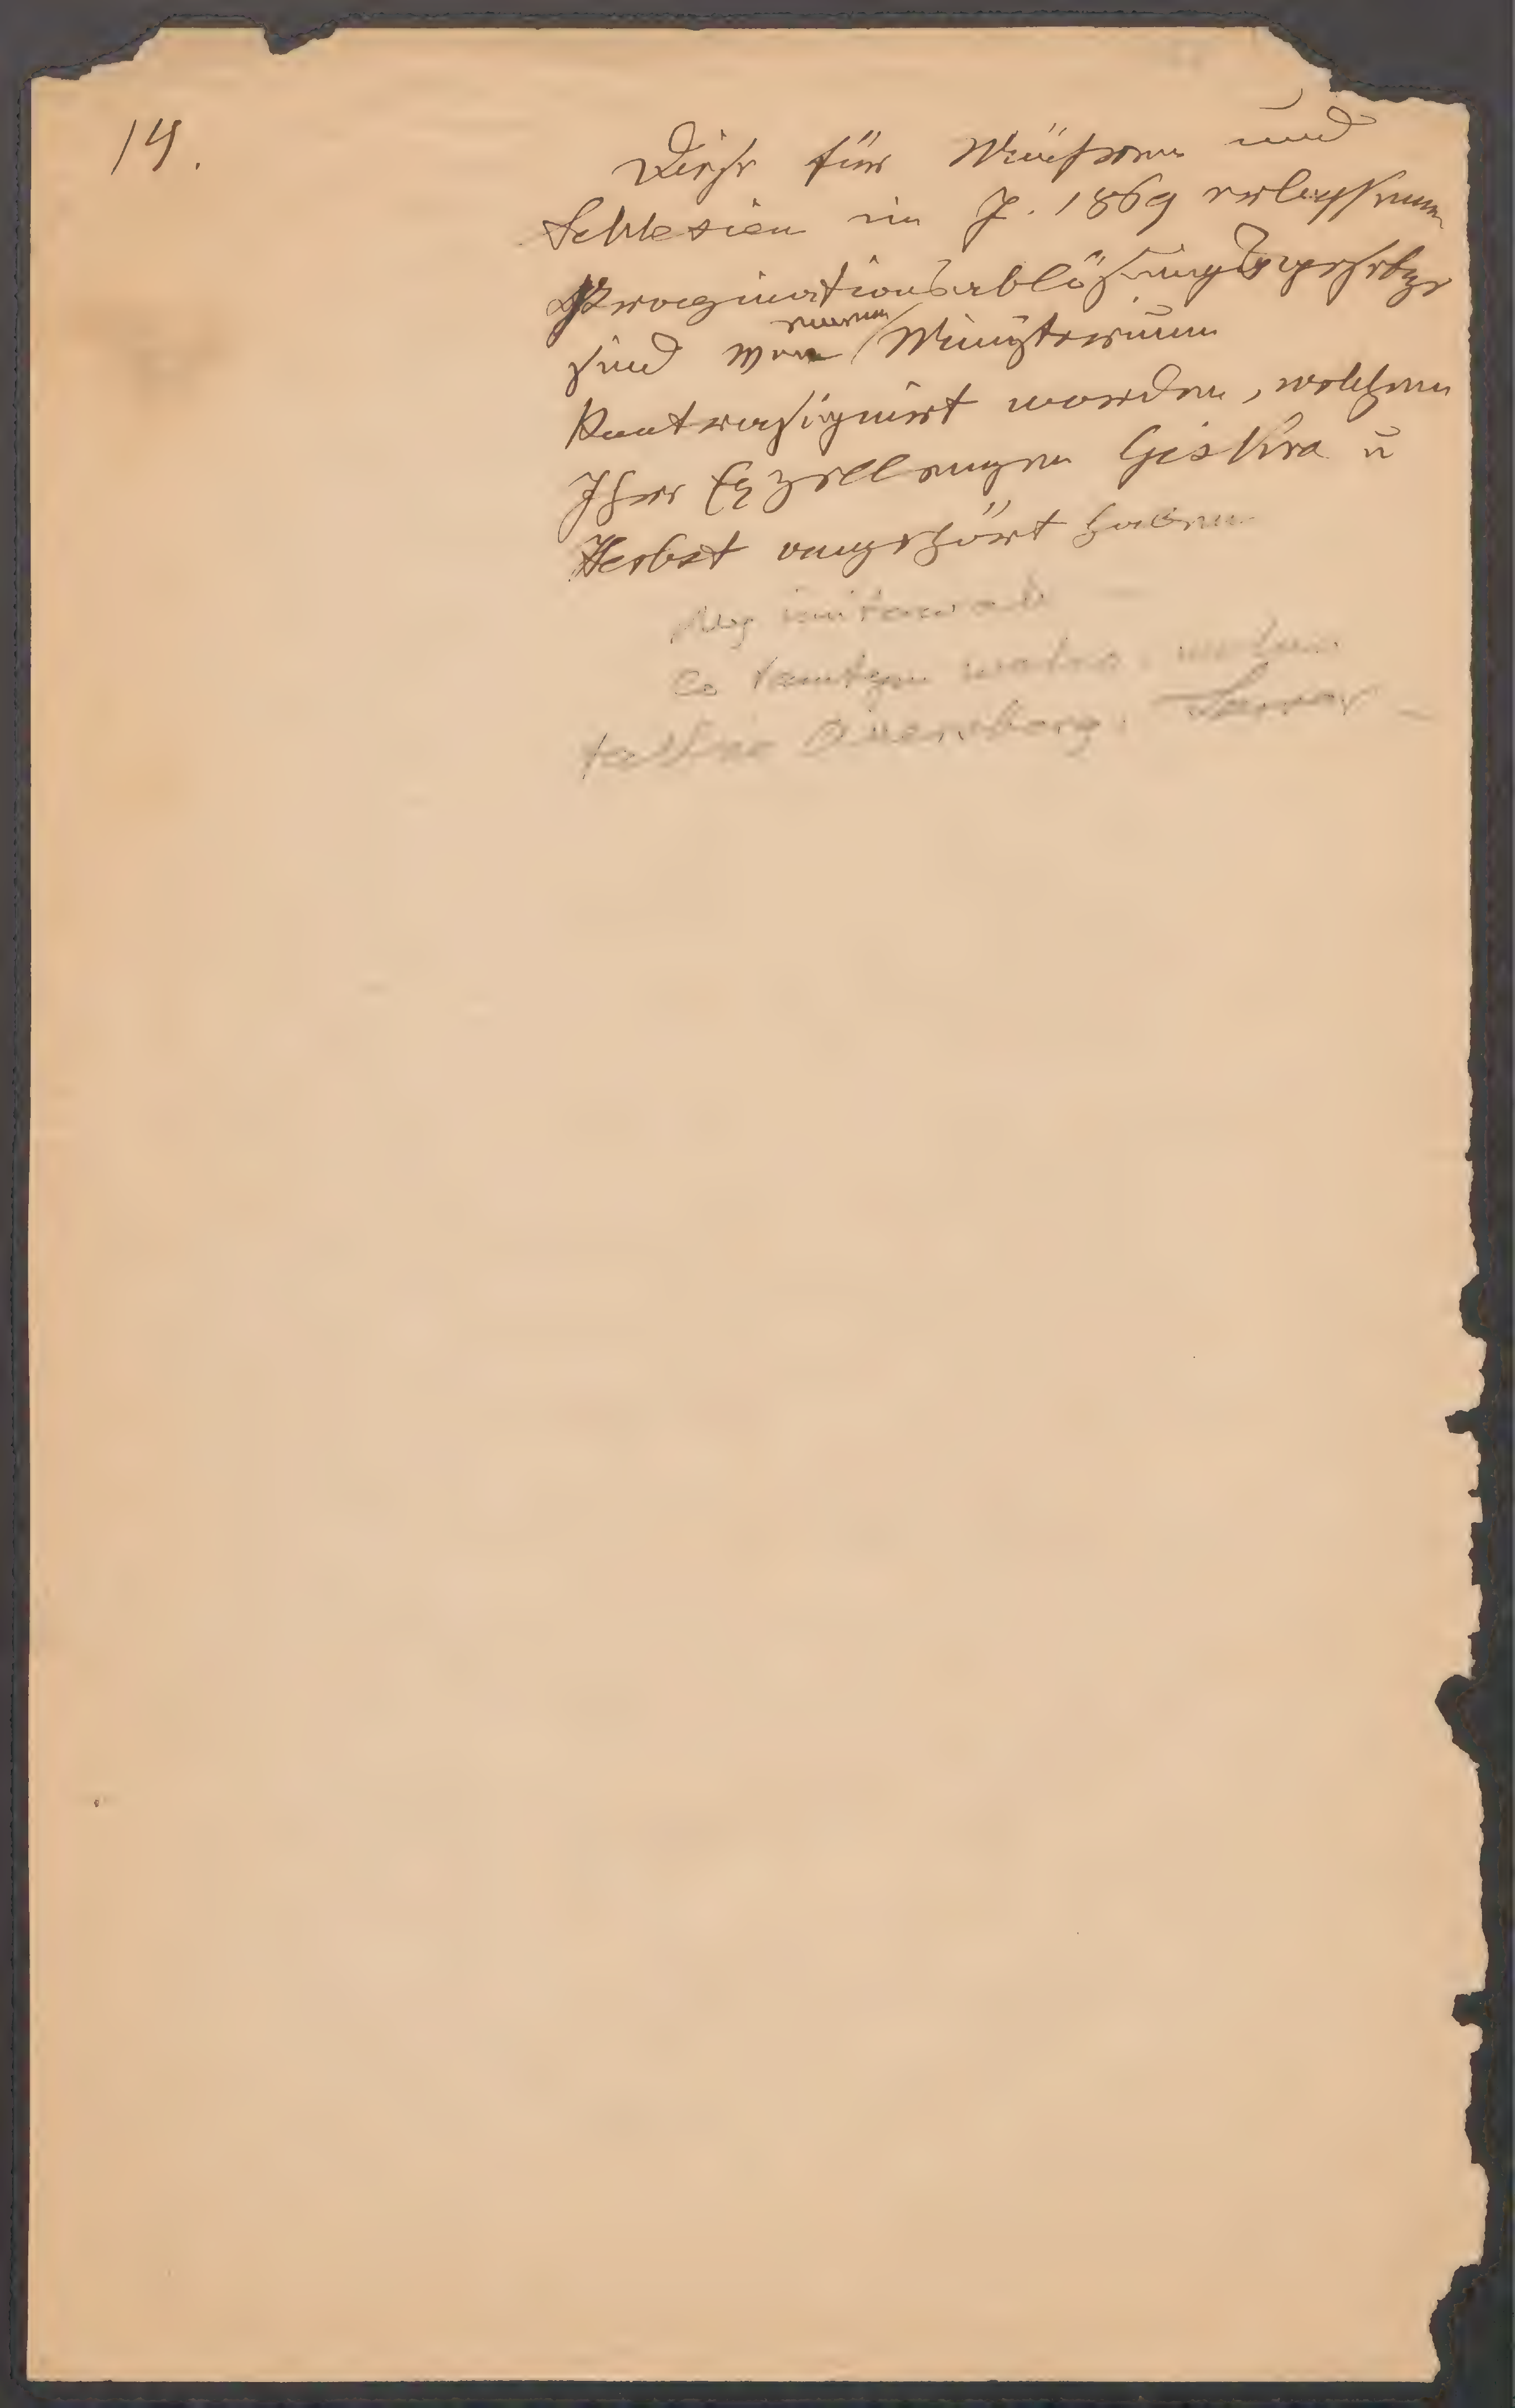 14.
Diese für Mähren und
Schlesien im J. 1869 erlassenen
Propinationsablösungsgesetze
sind von einem Ministerium
kontrasignirt worden, welchem
Ihre Exzellenzen Giskra u
Herbst angehört haben
Auersberg,